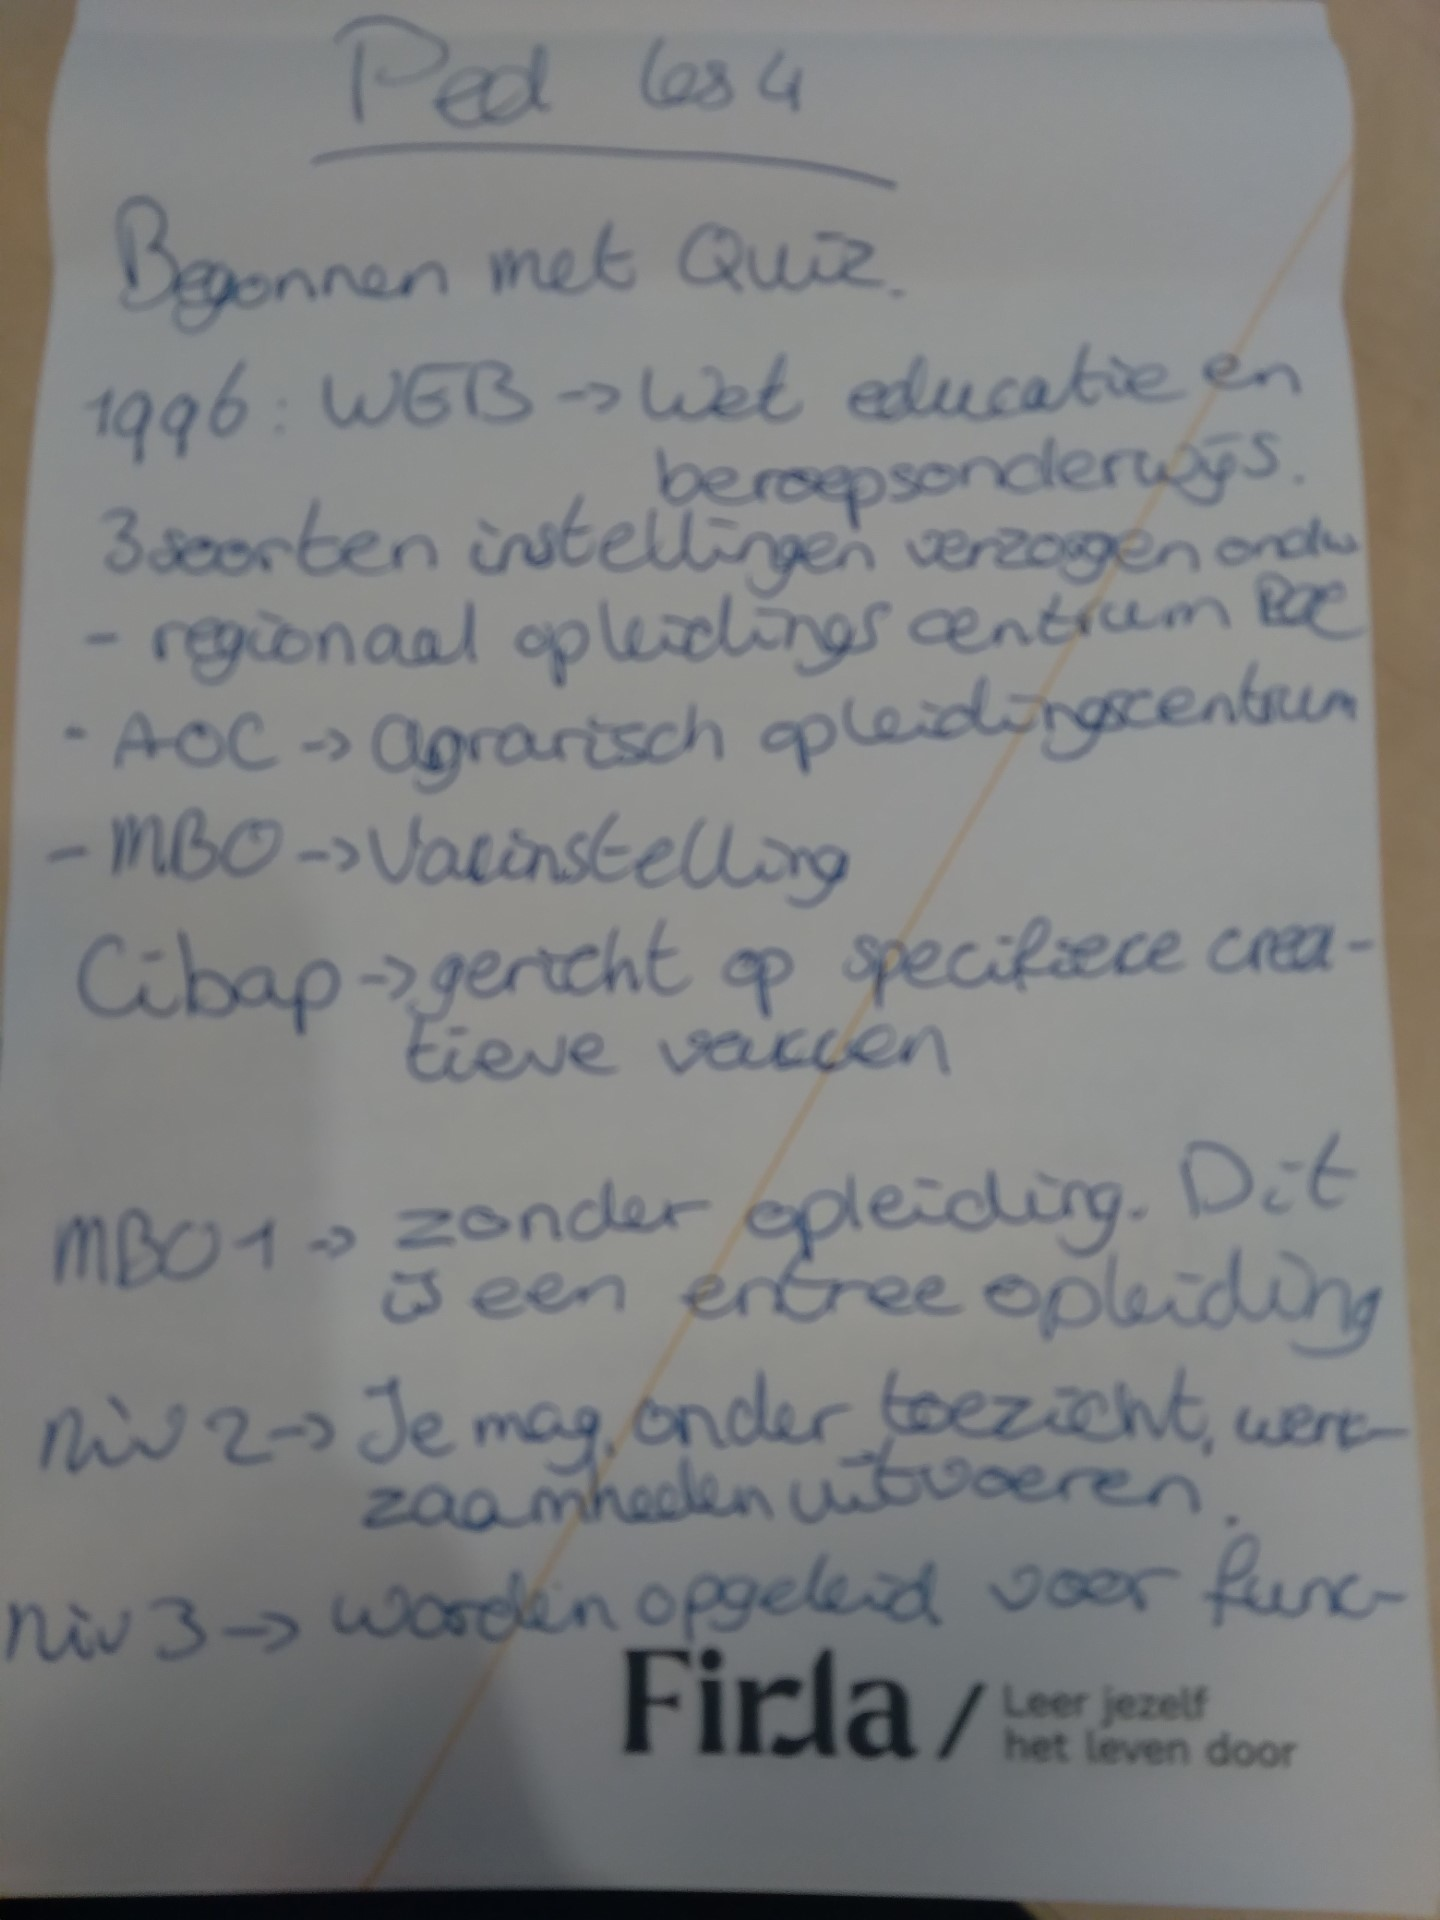 Ped les 4
Begonnen met Quiz.
1996: WEB -> Wet educatie en
beroepsonderwijs.
3 soorten instellingen verzorgen onderw
- regionaal opleidings centrum ROC
- AOC -> agrarisch opleidingscentrum
- MBO -> Vakinstelling
Cibap -> gericht op specifieke crea-
tieve vakken
MBO 1 -> zonder opleiding. Dit
is een entree opleiding
niv 2 -> Je mag, onder toezicht, werk-
zaamheden uitvoeren.
niv 3 -> worden opgeleid voor func-
Firda / Leer jezelf
het leven door